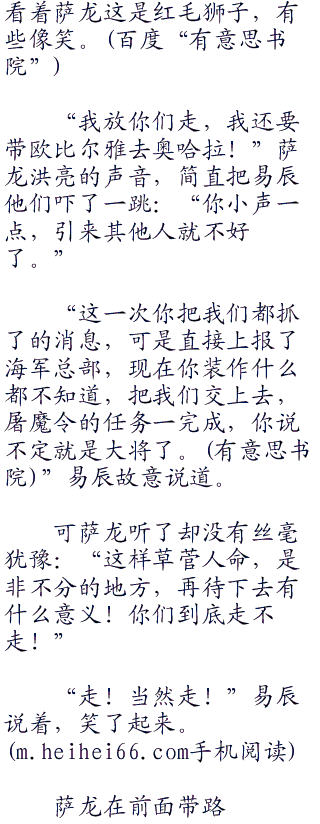 看着萨龙这是红毛狮子，有
些像笑。(百度“有意思书
院”)
“我放你们走，我还要
带欧比尔雅去奥哈拉！”萨
龙洪亮的声音，简直把易辰
他们吓了一跳：“你小声一
点，引来其他人就不好
了。”
“这一次你把我们都抓
了的消息，可是直接上报了
海军总部，现在你装作什么
都不知道，把我们交上去，
屠魔令的任务一完成，你说
不定就是大将了。(有意思书
院)”易辰故意说道。
可萨龙听了却没有丝毫
犹豫：“这样草菅人命，是
非不分的地方，再待下去有
什么意义！你们到底走不
走！”
“走！当然走！”易辰
说着，笑了起来。
(m.heihei66.com手机阅读)
萨龙在前面带路